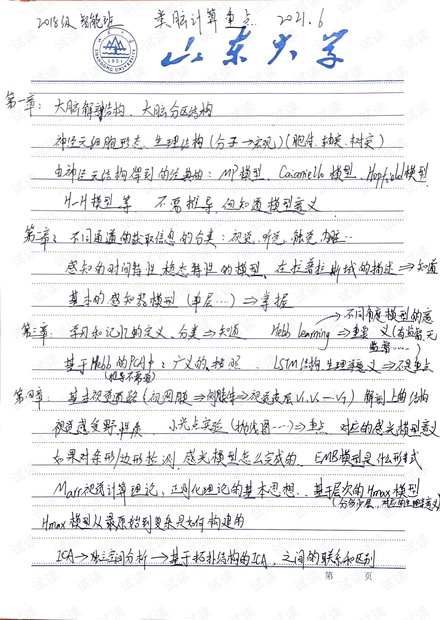 2018级 智能班 类脑计算重点 2021.6
山东大学
SHANDONG UNIVERSITY
1901
第一章: 大脑解剖结构、大脑分区结构
神经元细胞形态、生理结构(分子→宏观)(胞体、轴突、树突)
由神经元结构得到的经典的: MP模型、Caianiello模型、Hopfield模型
H-H模型等 不需推导,但知道模型意义
第二章: 不同通道的获取信息的分类: 视觉、听觉、触觉、内脏..
感知的时间特性 稳态特性的模型, 在拉普拉斯域的描述⇒知道
基本的感知器模型(单层…)⇒掌握
→不同角度模型的意
第三章: 学习和记忆的定义、分类⇒知道 Hebb learning⇒重要 义(有监督、无
监督....)
基于Hebb的PCA中: 广义的 LSTM结构,生理学意义⇒不是重点
(推导不需要)
第四章: 基本视觉通路(视网膜→外膝体→视觉皮层V1,V2—V5)解剖上的结构
视觉感受野性质, 小光点实验(抛物图…)⇒重点 对应的感光模型意义
如果对条形/边形检测,感光模型怎么完成的, EMB模型是什么形式
Marr视觉计算理论、正则化理论的基本思想..基于层次的Hmax模型
(分多少层,对应的生理学意义)
Hmax模型从最原始到复杂是如何构建的
ICA→独立空间分析→基于拓扑结构的ICA,之间的联系和区别
第 页